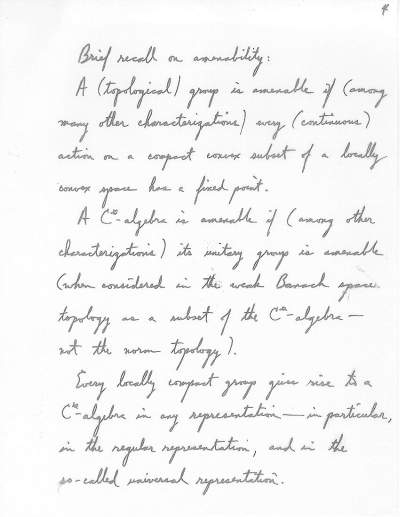 4
Brief recall on amenability:
A (topological) group is amenable if (among
many other characterizations) every (continuous)
action on a compact convex subset of a locally
convex space has a fixed point.
A C*-algebra is amenable if (among other
characterizations) its unitary group is amenable
(when considered in the weak Banach space
topology as a subset of the C*-algebra —
not the norm topology).
Every locally compact group gives rise to a
C*-algebra in any representation — in particular,
in the regular representation, and in the
so-called universal representation.